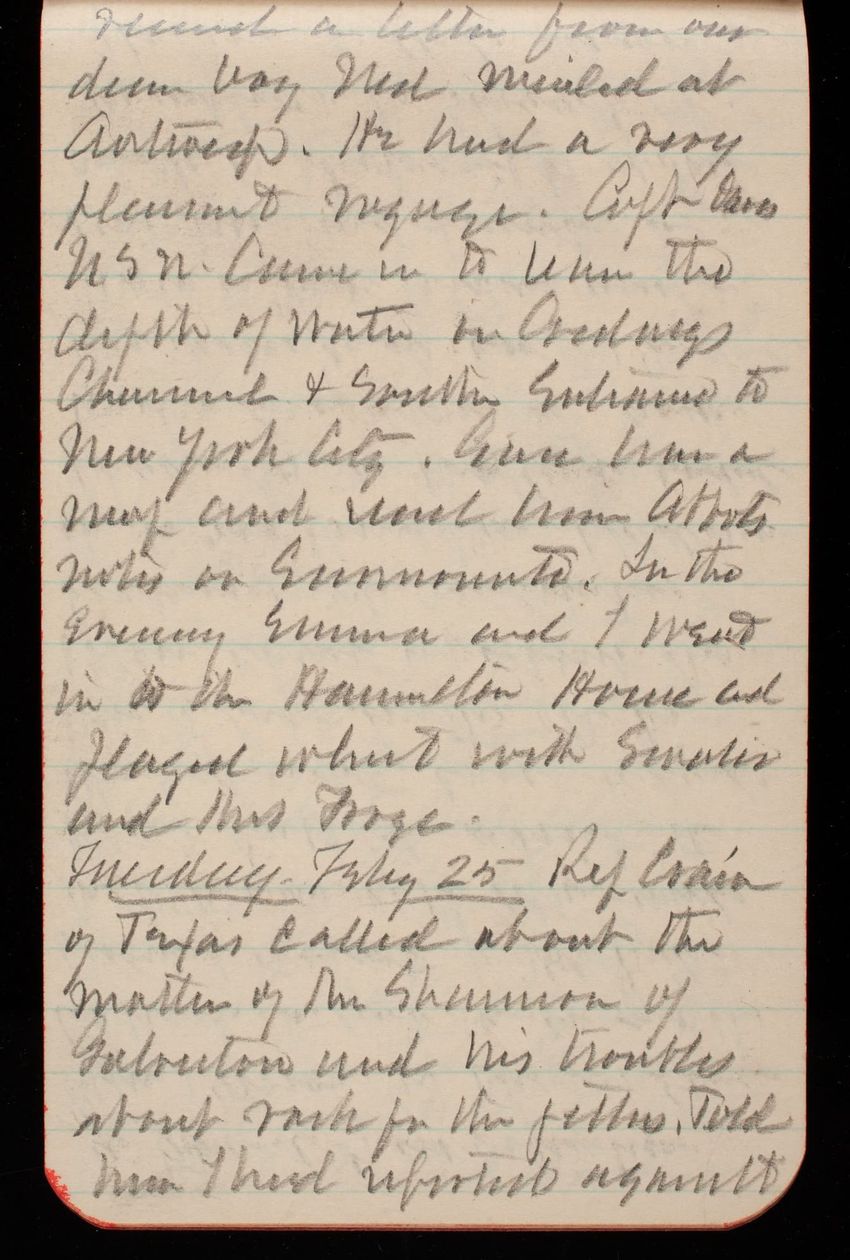 received a letter from our
dear boy Ned mailed at
Antwerp. He had a very
pleasant voyage. Capt
U S N. Came in to learn the
depth of water in Gedneys
Channel & South Entrance to
New York City. Gave him a
map and read him Abbots
notes on Ganomounts. In the
Evening Emma and I went
in to the Hamilton House and
played whist with
and Mrs
Tuesday Feby 25 Rep Crain
of Texas called about the
matter of Mr Shannon of
Galveston and his troubles
about rock for the jetties. Told
him I had reported against